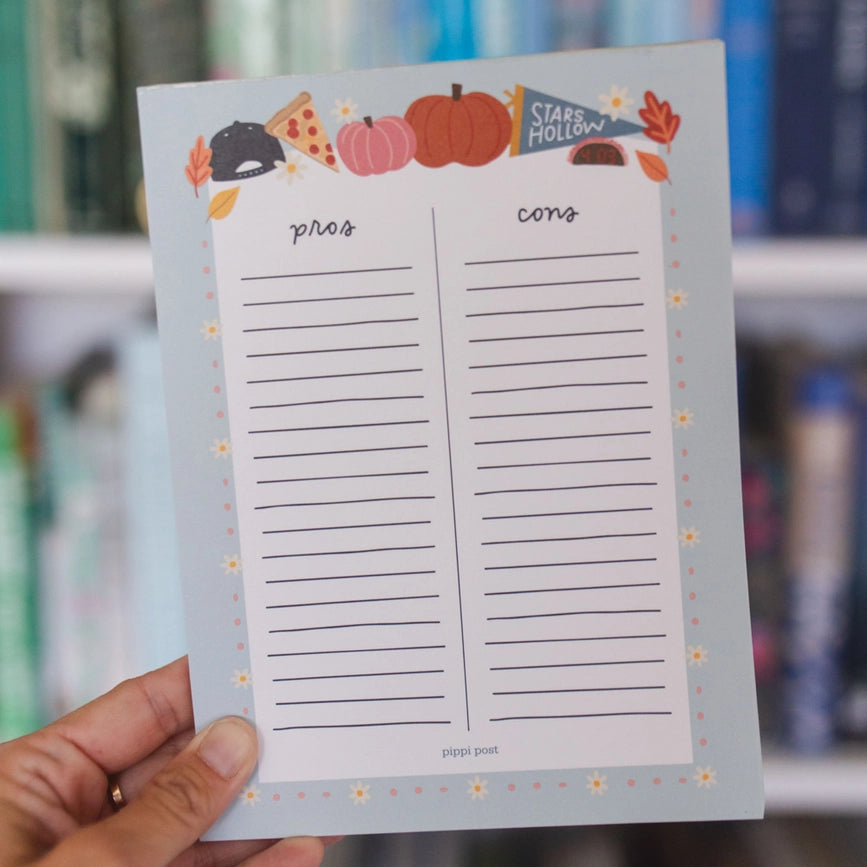 STARS
HOLLOW
4:03
pros
cons
pippi post